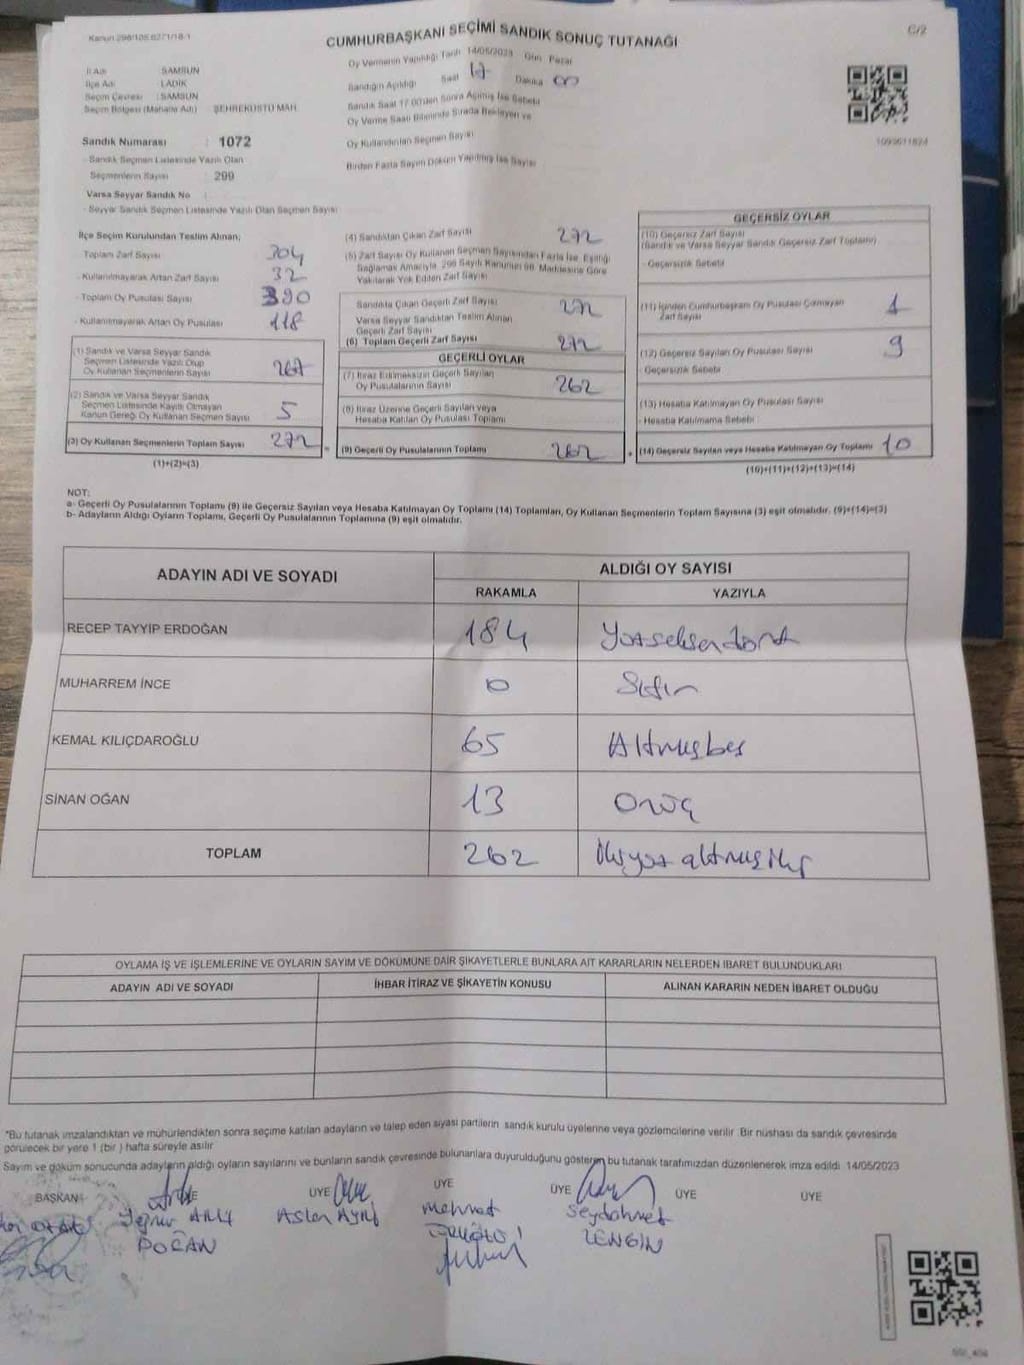 Kanun 298/105.6271/18-1
C/2
CUMHURBAŞKANI SEÇİMİ SANDIK SONUÇ TUTANAĞI
İl Adı : SAMSUN
İlçe Adı : LADİK
Seçim Çevresi : SAMSUN
Seçim Bölgesi (Mahalle Adı) : ŞEHREKÜSTÜ MAH.
Oy Vermenin Yapıldığı Tarih 14/05/2023 Gün Pazar
Sandığın Açıldığı Saat 17 Dakika 00
Sandık Saat 17:00'den Sonra Açılmış İse Sebebi
Oy Verme Saati Bitiminde Sırada Bekleyen ve
Oy Kullandırılan Seçmen Sayısı
Birden Fazla Sayım Döküm Yapılmış İse Sayısı
Sandık Numarası : 1072
- Sandık Seçmen Listesinde Yazılı Olan
Seçmenlerin Sayısı : 299
Varsa Seyyar Sandık No :
- Seyyar Sandık Seçmen Listesinde Yazılı Olan Seçmen Sayısı
İlçe Seçim Kurulundan Teslim Alınan;
Toplam Zarf Sayısı 304
- Kullanılmayarak Artan Zarf Sayısı 32
- Toplam Oy Pusulası Sayısı 390
- Kullanılmayarak Artan Oy Pusulası 118
(1) Sandık ve Varsa Seyyar Sandık
Seçmen Listesinde Yazılı Olup
Oy Kullanan Seçmenlerin Sayısı 267
(2) Sandık ve Varsa Seyyar Sandık
Seçmen Listesinde Kayıtlı Olmayan
Kanun Gereği Oy Kullanan Seçmen Sayısı 5
(3) Oy Kullanan Seçmenlerin Toplam Sayısı 272
(1)+(2)=(3)
(4) Sandıktan Çıkan Zarf Sayısı 272
(5) Zarf Sayısı Oy Kullanan Seçmen Sayısından Fazla İse, Eşitliği
Sağlamak Amacıyla, 298 Sayılı Kanunun 98. Maddesine Göre
Yakılarak Yok Edilen Zarf Sayısı
Sandıkta Çıkan Geçerli Zarf Sayısı 272
Varsa Seyyar Sandıktan Teslim Alınan
Geçerli Zarf Sayısı
(6) Toplam Geçerli Zarf Sayısı 272
GEÇERLİ OYLAR
(7) İtiraz Edilmeksizin Geçerli Sayılan
Oy Pusulalarının Sayısı 262
(8) İtiraz Üzerine Geçerli Sayılan veya
Hesaba Katılan Oy Pusulası Toplamı
(9) Geçerli Oy Pusulalarının Toplamı 262
GEÇERSİZ OYLAR
(10) Geçersiz Zarf Sayısı
(Sandık ve Varsa Seyyar Sandık Geçersiz Zarf Toplamı)
- Geçersizlik Sebebi
(11) İçinden Cumhurbaşkanı Oy Pusulası Çıkmayan
Zarf Sayısı 1
(12) Geçersiz Sayılan Oy Pusulası Sayısı 9
- Geçersizlik Sebebi
(13) Hesaba Katılmayan Oy Pusulası Sayısı
- Hesaba Katılmama Sebebi :
(14) Geçersiz Sayılan veya Hesaba Katılmayan Oy Toplamı 10
(10)+(11)+(12)+(13)=(14)
NOT:
a- Geçerli Oy Pusulalarının Toplamı (9) ile Geçersiz Sayılan veya Hesaba Katılmayan Oy Toplamı (14) Toplamları, Oy Kullanan Seçmenlerin Toplam Sayısına (3) eşit olmalıdır. (9)+(14)=(3)
b- Adayların Aldığı Oyların Toplamı, Geçerli Oy Pusulalarının Toplamına (9) eşit olmalıdır.
ADAYIN ADI VE SOYADI
ALDIĞI OY SAYISI
RAKAMLA YAZIYLA
RECEP TAYYİP ERDOĞAN 184 Yüzseksendört
MUHARREM İNCE 0 Sıfır
KEMAL KILIÇDAROĞLU 65 Altmışbeş
SİNAN OĞAN 13 Onüç
TOPLAM 262 ikiyüzaltmışiki
OYLAMA İŞ VE İŞLEMLERİNE VE OYLARIN SAYIM VE DÖKÜMÜNE DAİR ŞİKAYETLERLE BUNLARA AİT KARARLARIN NELERDEN İBARET BULUNDUKLARI
ADAYIN ADI VE SOYADI İHBAR İTİRAZ VE ŞİKAYETİN KONUSU ALINAN KARARIN NEDEN İBARET OLDUĞU
*Bu tutanak imzalandıktan ve mühürlendikten sonra seçime katılan adayların ve talep eden siyasi partilerin sandık kurulu üyelerine veya gözlemcilerine verilir. Bir nüshası da sandık çevresinde
görülecek bir yere 1 (bir) hafta süreyle asılır
Sayım ve döküm sonucunda adayların aldığı oyların sayılarını ve bunların sandık çevresinde bulunanlara duyurulduğunu gösteren bu tutanak tarafımızdan düzenlenerek imza edildi. 14/05/2023
BAŞKAN ÜYE ÜYE ÜYE ÜYE ÜYE
Aslan Mehmet Seydahmet
DOĞAN ZENGİN